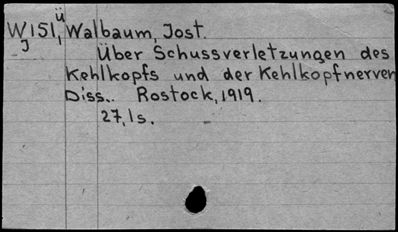 W151,ü Walbaum, Jost.
J
Über Schussverletzungen des
Kehlkopfs und der Kehlkopfnerven
Diss.. Rostock, 1919.
27, 1 s.